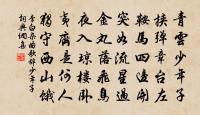 青雲少年子
挾彈章台左
鞍馬四邊開
突如流星過
金丸落飛鳥
夜入瓊樓臥
夷齊是何人
獨守西山餓
李白杂曲歌辞少年子
詞典網